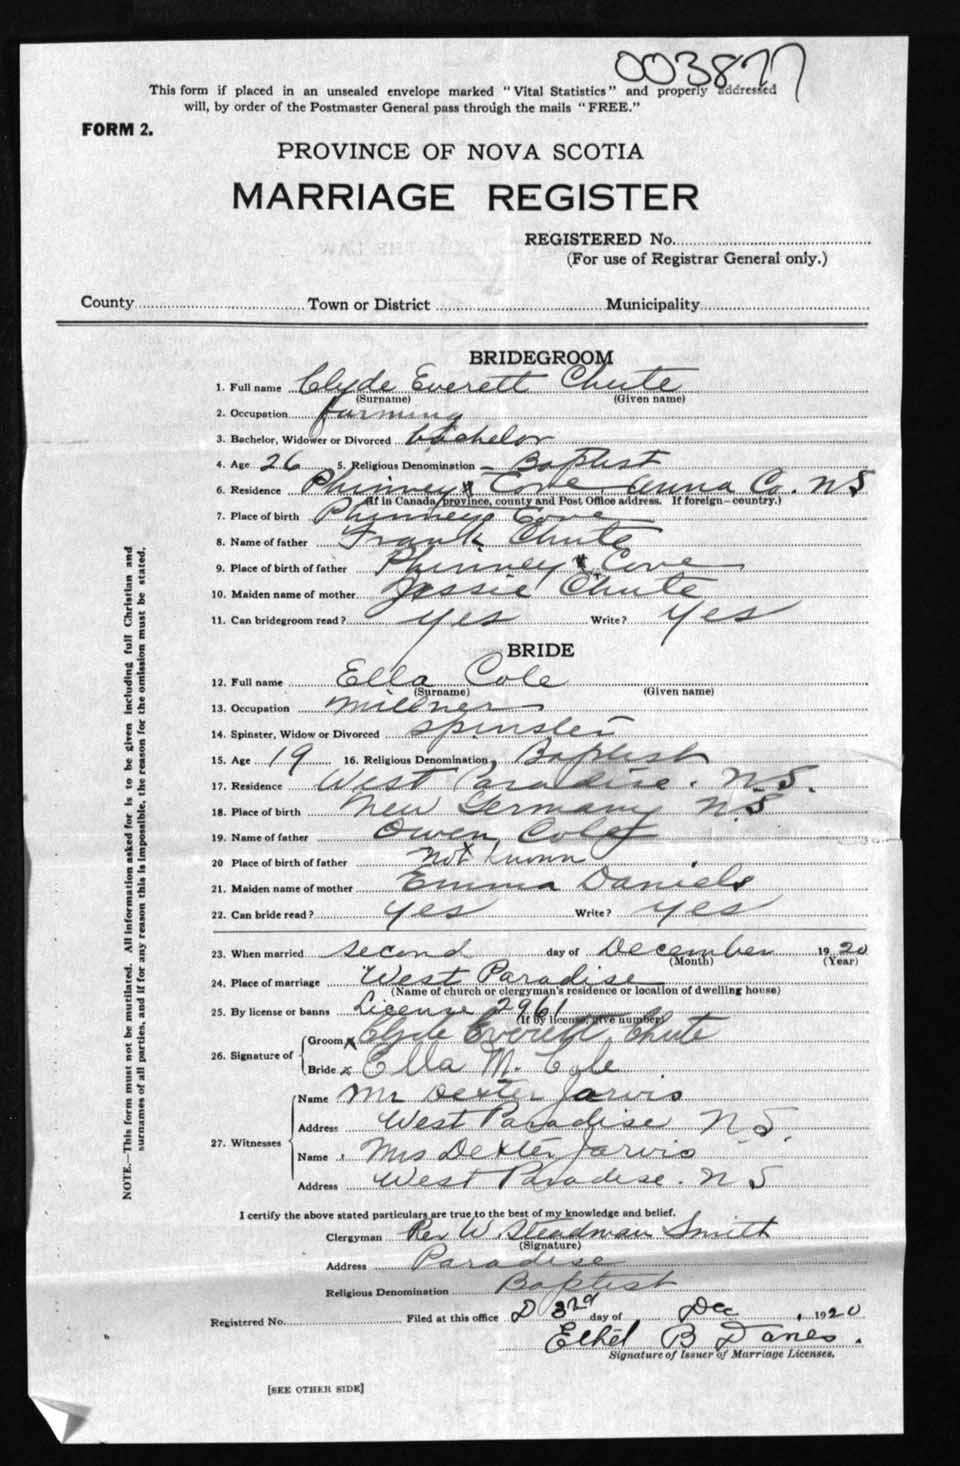 003877
This form if placed in an unsealed envelope marked "Vital Statistics" and properly addressed
will, by order of the Postmaster General pass through the mails "FREE."
FORM 2.
PROVINCE OF NOVA SCOTIA
MARRIAGE REGISTER
REGISTERED No.
(For use of Registrar General only.)
County Town or District Municipality
BRIDEGROOM
1. Full name Clyde Everett Chute
(Surname) (Given name)
2. Occupation farming
3. Bachelor, Widower or Divorced bachelor
4. Age 26 5. Religious Denomination - Baptist
6. Residence Phinneys Cove Anna Co. N S
(If in Canada, province, county and Post Office address. If foreign—country.)
7. Place of birth Phinneys Cove
8. Name of father Frank Chute
9. Place of birth of father Phinneys Cove
10. Maiden name of mother Jessie Chute
11. Can bridegroom read? yes Write? yes
BRIDE
12. Full name Ella Cole
(Surname) (Given name)
13. Occupation Millner
14. Spinster, Widow or Divorced spinster
15. Age 19 16. Religious Denomination Baptist
17. Residence West Paradise. N.S.
18. Place of birth New Germany N.S
19. Name of father Owen Cole
20 Place of birth of father Not known
21. Maiden name of mother Emma Daniels
22. Can bride read? yes Write? yes
23. When married second day of December 1920
(Month) (Year)
24. Place of marriage West Paradise
(Name of church or clergyman's residence or location of dwelling house)
25. By license or banns License 2961
(If by license, give number)
26. Signature of Groom x Clyde Everett Chute
Bride x Ella M. Cole
27. Witnesses Name Mr Dexter Jarvis
Address West Paradise N.S.
Name Mrs Dexter Jarvis
Address West Paradise. N S
I certify the above stated particulars are true to the best of my knowledge and belief.
Clergyman Rev W. Steadman Smith
(Signature)
Address Paradise
Religious Denomination Baptist
Registered No. Filed at this office 3rd day of Dec, 1920
Ethel B
Signature of Issuer of Marriage Licenses.
[SEE OTHER SIDE]
NOTE.—This form must not be mutilated. All information asked for is to be given including full Christian and
surnames of all parties, and if for any reason this is impossible, the reason for the omission must be stated.